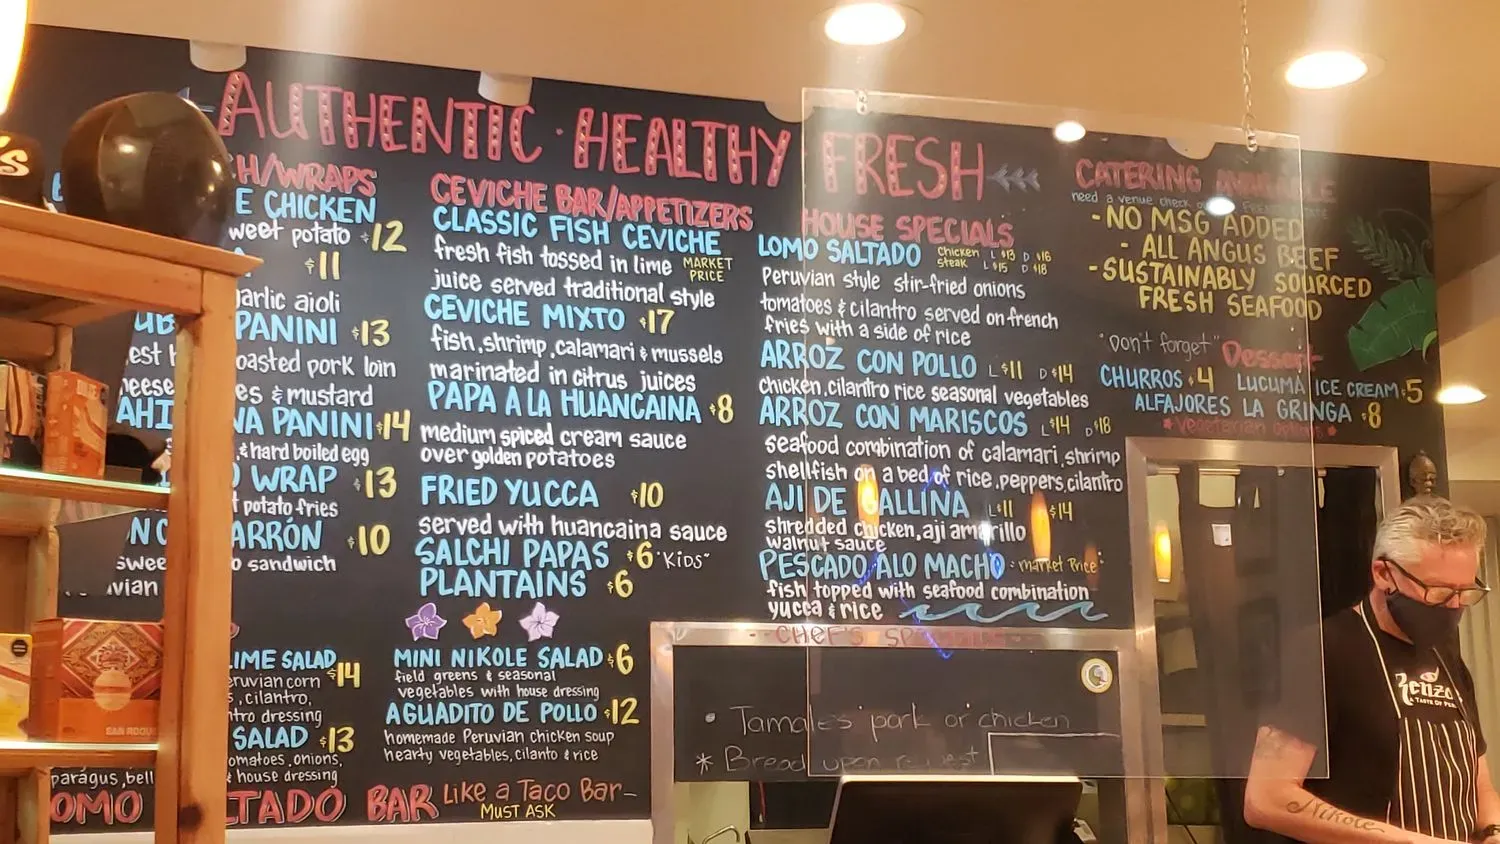 AUTHENTIC · HEALTHY FRESH
H/WRAPS
E CHICKEN
weet potato $12
$11
garlic aioli
UB PANINI $13
est oasted pork loin
heese es & mustard
AHI NA PANINI $14
& hard boiled egg
WRAP $13
t potato fries
N C ARRÓN $10
swee o sandwich
vian
LIME SALAD $14
eruvian corn
s, cilantro,
ntro dressing
SALAD $13
omatoes, onions,
paragus, bell & house dressing
OMO LTADO BAR Like a Taco Bar-
MUST ASK
CEVICHE BAR/APPETIZERS
CLASSIC FISH CEVICHE
fresh fish tossed in lime MARKET PRICE
juice served traditional style
CEVICHE MIXTO $17
fish, shrimp, calamari & mussels
marinated in citrus juices
PAPA A LA HUANCAINA $8
medium spiced cream sauce
over golden potatoes
FRIED YUCCA $10
served with huancaina sauce
SALCHI PAPAS $6 "KIDS"
PLANTAINS $6
MINI NIKOLE SALAD $6
field greens & seasonal
vegetables with house dressing
AGUADITO DE POLLO $12
homemade Peruvian chicken soup
hearty vegetables, cilanto & rice
HOUSE SPECIALS
LOMO SALTADO chicken L $13 D $16
steak L $15 D $18
Peruvian style stir-fried onions
tomatoes & cilantro served on french
fries with a side of rice
ARROZ CON POLLO L $11 D $14
chicken, cilantro rice seasonal vegetables
ARROZ CON MARISCOS L $14 D $18
seafood combination of calamari, shrimp
shellfish on a bed of rice, peppers, cilantro
AJI DE GALLINA L $11 $14
shredded chicken, aji amarillo
walnut sauce
PESCADO ALO MACHO "market Price"
fish topped with seafood combination
yucca & rice
CHEF'S SPECIALS
• Tamales pork or chicken
* Bread upon request
CATERING AVAILABLE
need a venue check
-NO MSG ADDED
- ALL ANGUS BEEF
-SUSTAINABLY SOURCED
FRESH SEAFOOD
"Don't forget" Dessert
CHURROS $4 LUCUMA ICE CREAM $5
ALFAJORES LA GRINGA $8
*vegetarian options*
Renzo
A TASTE OF PERU
Nikole
SAN ROQUE
's